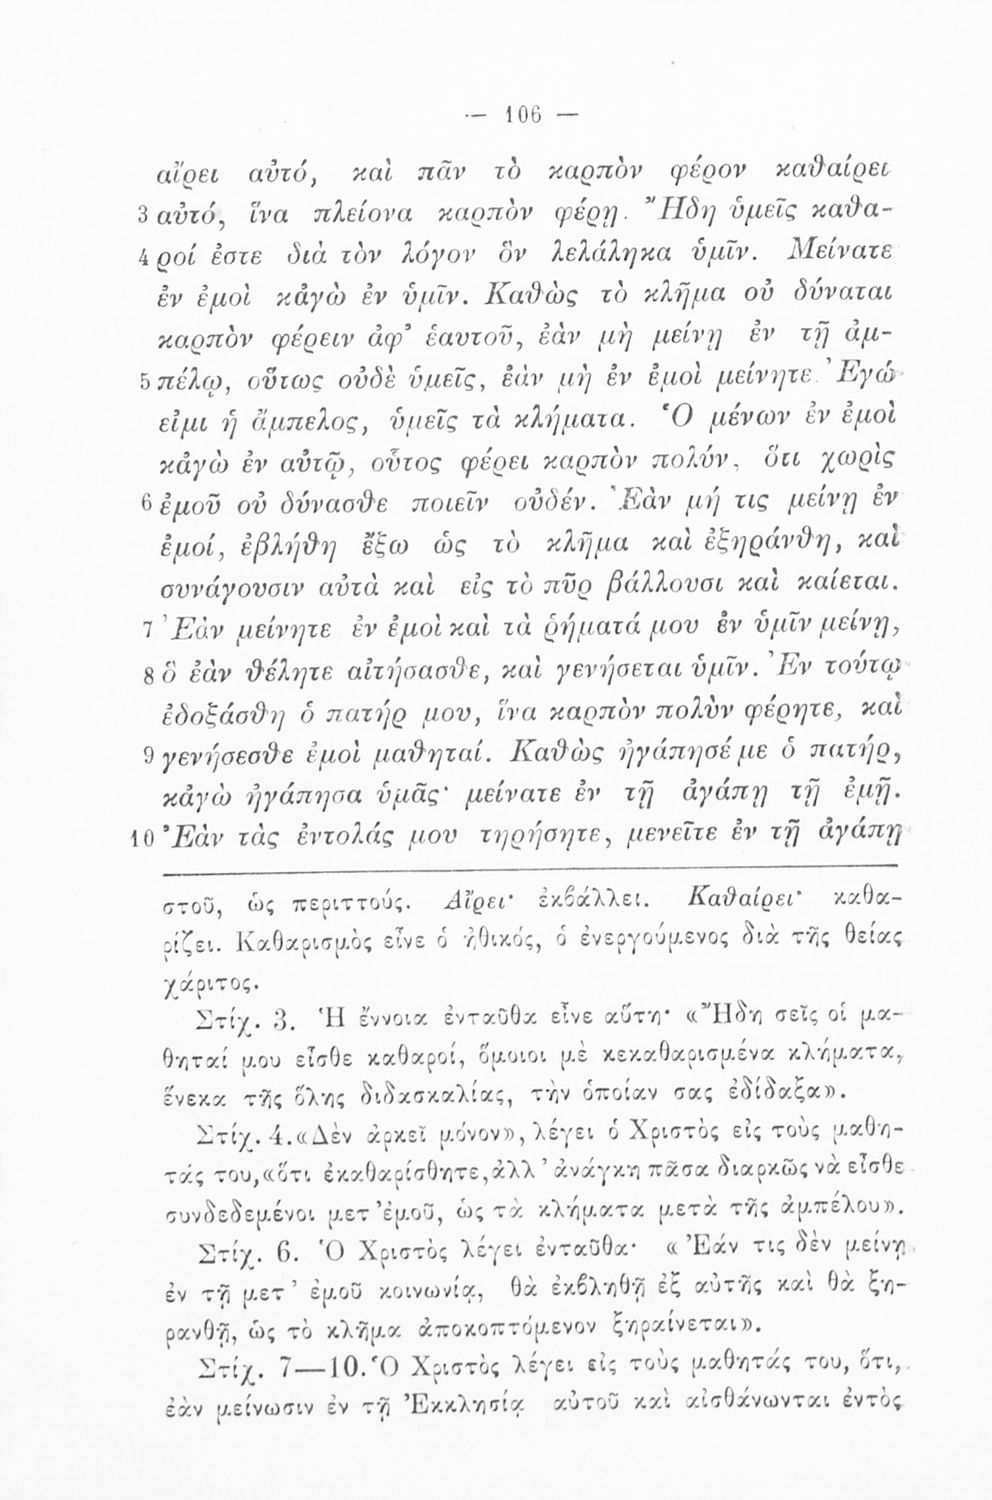 — 106 —
αἴρει αὐτό, καὶ πᾶν τὸ καρπὸν φέρον καθαίρει
3 αὐτό, ἵνα πλείονα καρπὸν φέρῃ. Ἤδη ὑμεῖς καθα-
4 ροί ἐστε διὰ τὸν λόγον ὃν λελάληκα ὑμῖν. Μείνατε
ἐν ἐμοὶ κἀγὼ ἐν ὑμῖν. Καθὼς τὸ κλῆμα οὐ δύναται
καρπὸν φέρειν ἀφ’ ἑαυτοῦ, ἐὰν μὴ μείνῃ ἐν τῇ ἀμ-
5 πέλῳ, οὕτως οὐδὲ ὑμεῖς, ἐὰν μὴ ἐν ἐμοὶ μείνητε. Ἐγώ
εἰμι ἡ ἄμπελος, ὑμεῖς τὰ κλήματα. Ὁ μένων ἐν ἐμοὶ
κἀγὼ ἐν αὐτῷ, οὗτος φέρει καρπὸν πολύν, ὅτι χωρὶς
6 ἐμοῦ οὐ δύνασθε ποιεῖν οὐδέν. Ἐὰν μή τις μείνῃ ἐν
ἐμοί, ἐβλήθη ἔξω ὡς τὸ κλῆμα καὶ ἐξηράνθη, καὶ
συνάγουσιν αὐτὰ καὶ εἰς τὸ πῦρ βάλλουσι καὶ καίεται.
7 Ἐὰν μείνητε ἐν ἐμοὶ καὶ τὰ ῥήματά μου ἐν ὑμῖν μείνῃ,
8 ὃ ἐὰν θέλητε αἰτήσασθε, καὶ γενήσεται ὑμῖν. Ἐν τούτῳ
ἐδοξάσθη ὁ πατήρ μου, ἵνα καρπὸν πολὺν φέρητε, καὶ
9 γενήσεσθε ἐμοὶ μαθηταί. Καθὼς ἠγάπησέ με ὁ πατήρ,
κἀγὼ ἠγάπησα ὑμᾶς· μείνατε ἐν τῇ ἀγάπῃ τῇ ἐμῇ.
10 Ἐὰν τὰς ἐντολάς μου τηρήσητε, μενεῖτε ἐν τῇ ἀγάπῃ
στοῦ, ὡς περιττούς. Αἴρει· ἐκβάλλει. Καθαίρει· καθα-
ρίζει. Καθαρισμὸς εἶνε ὁ ἠθικός, ὁ ἐνεργούμενος διὰ τῆς θείας
χάριτος.
Στίχ. 3. Ἡ ἔννοια ἐνταῦθα εἶνε αὕτη· «Ἤδη σεῖς οἱ μα-
θηταί μου εἶσθε καθαροί, ὅμοιοι μὲ κεκαθαρισμένα κλήματα,
ἕνεκα τῆς ὅλης διδασκαλίας, τὴν ὁποίαν σας ἐδίδαξα».
Στίχ. 4. «Δὲν ἀρκεῖ μόνον», λέγει ὁ Χριστὸς εἰς τοὺς μαθη-
τάς του, «ὅτι ἐκαθαρίσθητε, ἀλλ’ ἀνάγκη πᾶσα διαρκῶς νὰ εἶσθε
συνδεδεμένοι μετ’ ἐμοῦ, ὡς τὰ κλήματα μετὰ τῆς ἀμπέλου».
Στίχ. 6. Ὁ Χριστὸς λέγει ἐνταῦθα· «Ἐάν τις δὲν μείνῃ
ἐν τῇ μετ’ ἐμοῦ κοινωνίᾳ, θὰ ἐκβληθῇ ἐξ αὐτῆς καὶ θὰ ξη-
ρανθῇ, ὡς τὸ κλῆμα ἀποκοπτόμενον ξηραίνεται».
Στίχ. 7—10. Ὁ Χριστὸς λέγει εἰς τοὺς μαθητάς του, ὅτι,
ἐὰν μείνωσιν ἐν τῇ Ἐκκλησίᾳ αὐτοῦ καὶ αἰσθάνωνται ἐντὸς